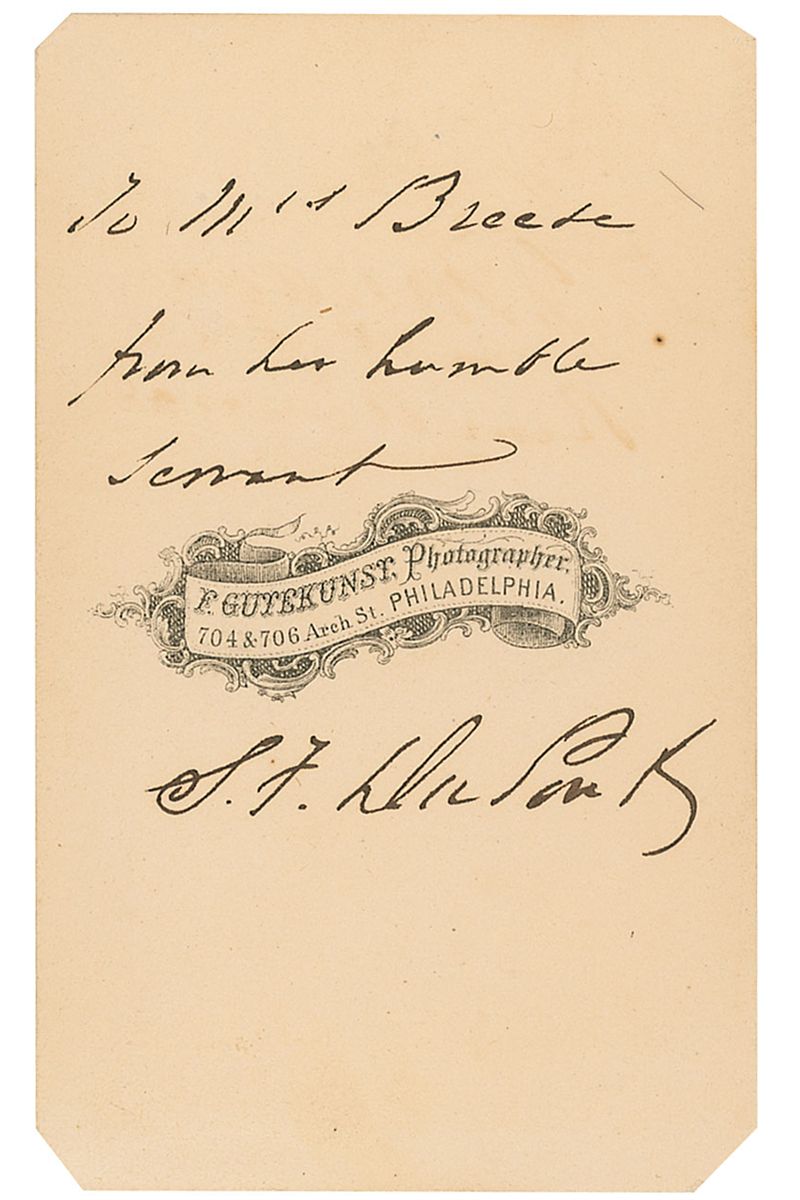 To Mrs Breese
from her humble
servant
F. GUTEKUNST, Photographer,
704 & 706 Arch St. PHILADELPHIA.
S. F. Du Pont